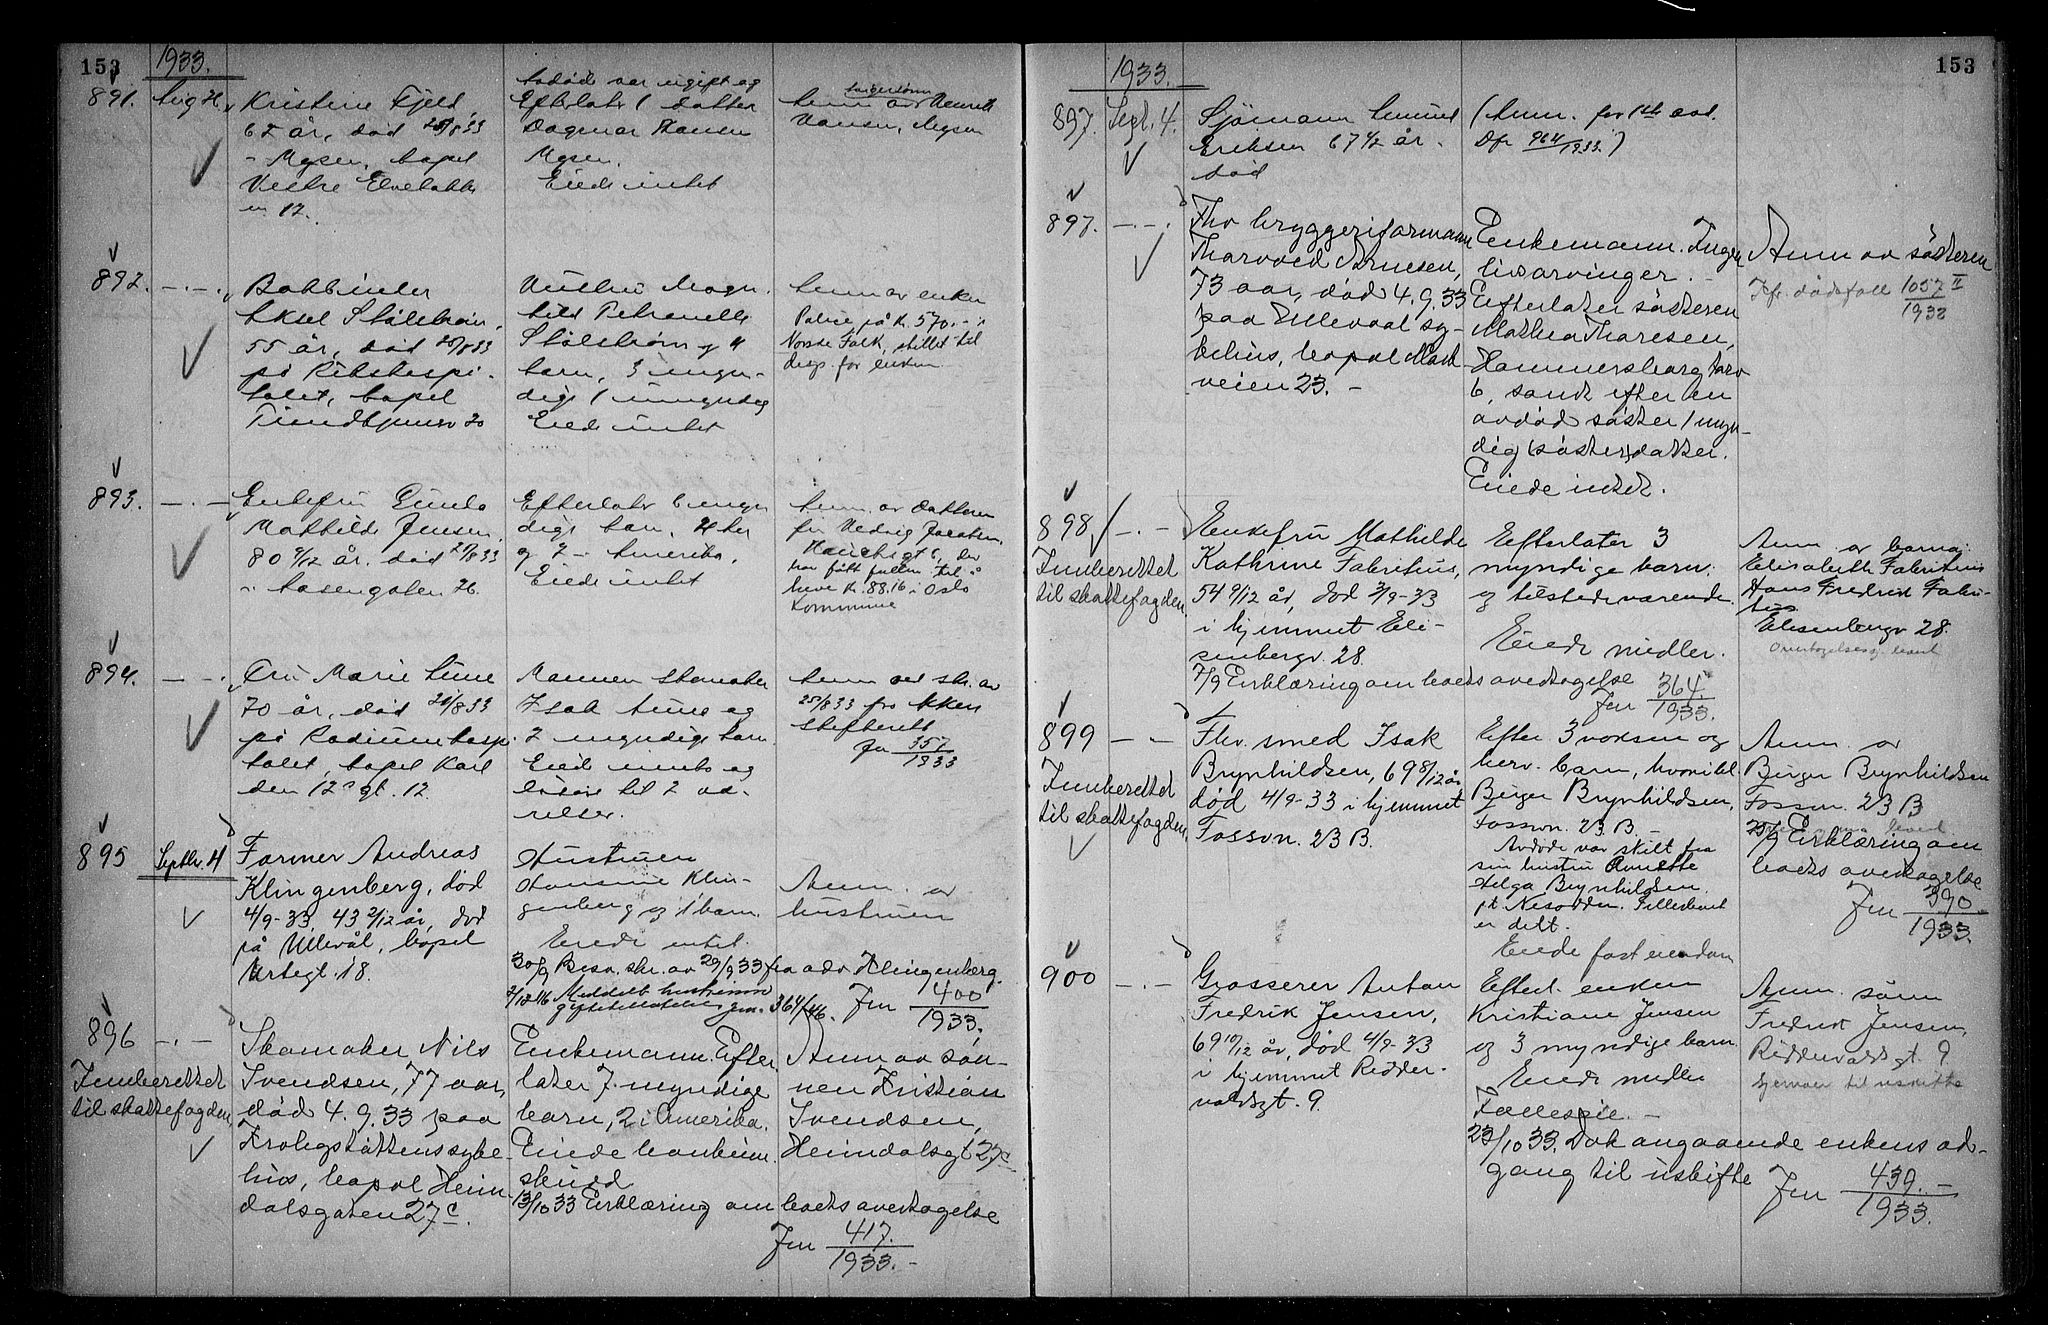 153
1933.
891.
Aug 31.
Kristine Fjeld
65 år, død 28/8 33
Mysen, bopel
Vestre Elvebakke
en 12.
Avdøde var ugift og
Efterlater 1 datter
Dagmar Hansen
Mysen.
Eiede intet
svigersønn
Anm av Henrik
Hansen, Mysen
892.
Bokbinder
Aksel Stålstrøm,
55 år, død 28/8 33
på Rikshospi-
talet, bopel
Hustru Magn
hild Petronelle
Stålstrøm og 4
barn, 3 myn-
dige 1 umyndig
Eiede intet
Anm av enken
Police på kr. 570.-
Norske Folk, stillet til
disp. for enken
893.
Enkefru Gunda
Mathilde Jensen,
80 9/12 år, død 29/8 33
Aasengaten 26.
Efterlater 6 myn
dige barn, 4 her
og 2 i Amerika.
Eiede intet
Anm. av datteren
fru Hedvig Jacobsen,
Hauchsgt 6, der
har fått fullm til å
heve kr. 88.16 i Oslo
kommune
894.
Fru Marie Aune
70 år, død 21/8 33
på Radiumhospi
talet, bopel Karl
den 12s gt. 12.
Mannen skomaker
Isak Aune og
2 myndige barn
Eiede innbo og
løsøre til 2 væ-
relser.
Anm ved skr. av
25/8 33 fra Aker
skifterett
Jnr 357/1933
895
Septbr. 4
Farmer Andreas
Klingenberg, død
4/9-33, 43 2/12 år, død
på Ullevål, bopel
Urtegt. 18.
Hustruen
Hansine Klin-
genberg og 1 barn.
Eiede intet.
Anm. av
hustruen
30/9 Besv. skr. av 29/9 33 fra adv Klingenberg.
2/12 46 Meddelt hustruen
skifteattest jnr. 364/46. Jnr 400/1933.
896
Innberettet
til skattefogden
Skomaker Nils
Svendsen, 77 aar,
død 4.9.33 paa
Krohgstøttens syke-
hus, bopel Heim-
dalsgaten 27 c.
Enkemann. Efter
later 7 myndige
barn, 2 i Amerika.
Eiede bankinn-
skudd
Anm av søn-
nen Kristian
Svendsen,
Heimdalsgt 27 c
13/10 33 Erklæring om boets overtagelse
Jnr 417./1933.-
153
1933.
897.
Sept. 4.
Sjømann Samuel
Eriksen 67 1/2 år.
død
(Anm. for 1ste avd.
Dfr 964/1933.)
897.
Fhv bryggeriformann
Thorvald Arnesen,
73 aar, død 4.9.33
paa Ullevaal sy-
kehus, bopel Mark-
veien 23.-
Enkemann. Ingen
livsarvinger.
Efterlater søsteren
Mathea Thoresen,
Hammersborg torv
6, samt efter en
avdød søster 1 myn-
dig søsterdatter.
Eiede intet.
Anm av søsteren
Jfr. dødsfall 1057 II/1933
898
Innberettet
til skattefogden.
Enkefru Mathilde
Kathrine Fabritius,
54 9/12 år, død 3/9-33
i hjemmet Eli-
senbergv. 28.
Efterlater 3
myndige barn.
og tilstedeværende.
Eiede midler.
Anm. av barna:
Elisabeth Fabritius
Hans Fredrik Fabri-
tius
Elisenbergv 28.
Overtagelseserkl. levert
7/9 Erklæring om boets overtagelse
Jnr 364./1933.
899
Innberettet
til skattefogden.
Fhv. smed Isak
Brynhildsen, 69 8/12 år
død 4/9-33 i hjemmet
Fossvn. 23 B.
Efter. 3 voksne og
herv. barn, hvoribl.
Birger Brynhildsen,
Fossvn. 23 B.
Avdøde var skilt fra
sin hustru Annette
Helga Brynhildsen
pt. Nesodden. Fellesboet
er delt.
Eiede fast eiendom
Anm. av
Birger Brynhildsen
Fossvn. 23 B
25/9 Erklæring om
boets overtagelse
Jnr 390/1933.
900
Grosserer Anton
Fredrik Jensen,
69 10/12 år, død 4/9-33
i hjemmet Ridder-
voldsgt. 9.
Efterl. enken
Kristiane Jensen
og 3 myndige barn.
Eiede midler
Fælleseie.-
Anm. sønn
Fredrik Jensen,
Riddervoldsgt. 9
Hjemmel til uskifte
23/10 33. Dok angaaende enkens ad-
gang til uskifte
Jnr 439.-/1933.